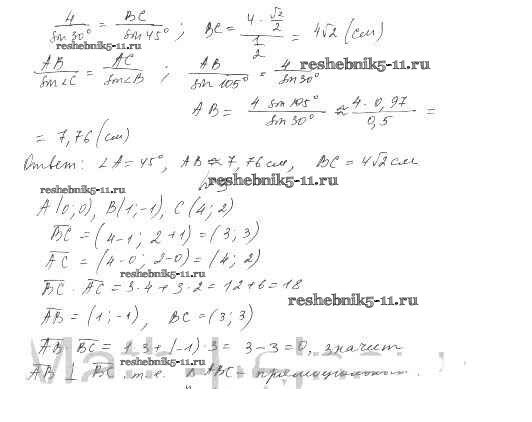 4 / sin 30° = BC / sin 45° ; BC = 4 · √2/2 / 1/2 = 4√2 (см)
reshebnik5-11.ru
reshebnik5-11.ru
AB / sin∠C = AC / sin∠B ; AB / sin 105° = 4 / sin 30°
AB = 4 sin 105° / sin 30° ≈ 4 · 0,97 / 0,5 =
= 7,76 (см)
Ответ: ∠A = 45°, AB ≈ 7,76 см, BC = 4√2 см
reshebnik5-11.ru
reshebnik5-11.ru
A (0; 0), B(1; -1), C (4; 2)
BC = (4-1; 2+1) = (3; 3)
AC = (4-0; 2-0) = (4; 2)
reshebnik5-11.ru
BC · AC = 3·4 + 3·2 = 12+6 = 18
reshebnik5-11.ru
AB = (1; -1), BC = (3; 3)
AB · BC = 1·3 + (-1)·3 = 3-3 = 0, значит
reshebnik5-11.ru
AB ⊥ BC, т.е. Δ ABC - прямоугольный.